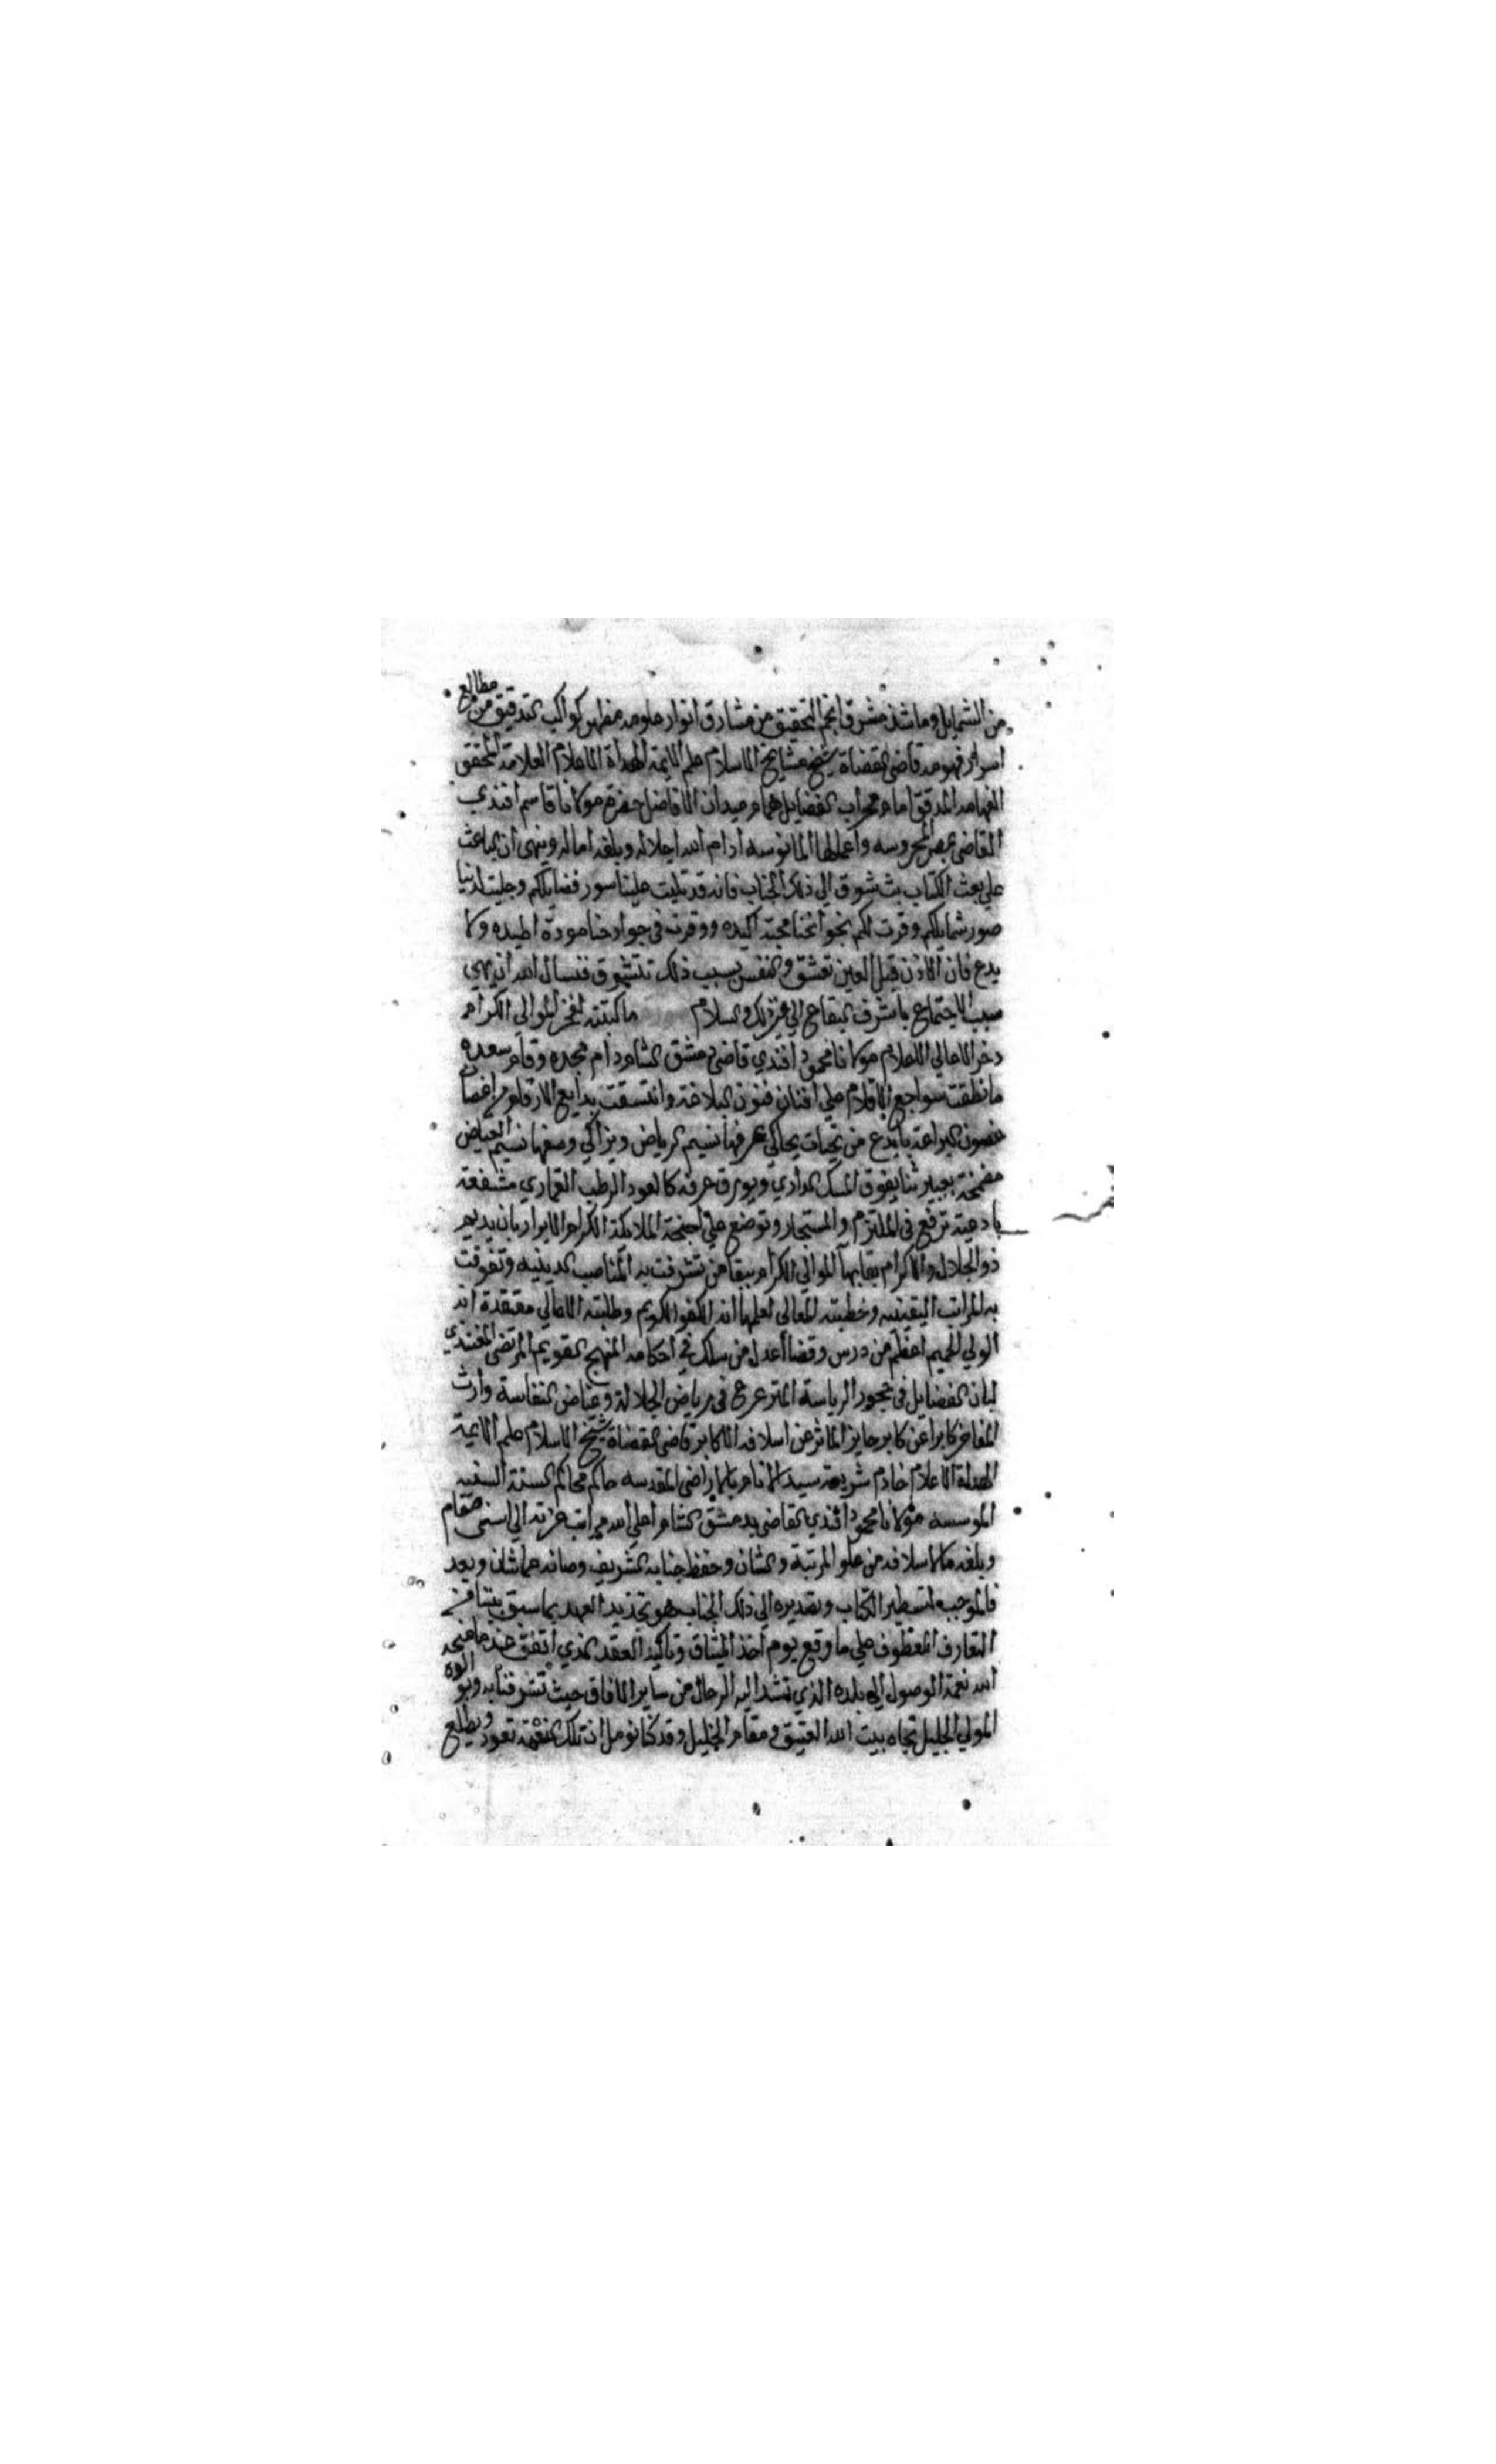 من الشمايل وما شذ مشرق انجم التحقيق من مشارق انوار علومه مظهر كواكب التدقيق من مطالع
اسرار فهومه قاضي القضاة شيخ مشايخ الاسلام علم الايمة الهداة الاعلام العلامة المحقق
الفهامه المدقق امام محراب الفضايل همام ميدان الافاضل حضرة مولانا قاسم افندي
القاضي بمصر المحروسه واعمالها المانوسه ادام الله اجلاله وبلغه اماله وينهي ان الباعث
علي بعث الكتاب بث شوق الي ذلك الجناب فانه قد تليت علينا سور فضايلكم وجليت لدينا
صور شمايلكم وقرت لكم بجوانحنا محبة اكيده ووقرت في جوارحنا مودة اطيده ولا
بدع فان الاذن قبل العين تعشق والنفس بسبب ذلك تتشوق فنسال الله ان يهيي
سبب الاجتماع باشرف البقاع الي غير ذلك والسلام ما كتبته لفخر الموالي الكرام
ذخر الاعالي الاعلام مولانا محمود افندي قاضي دمشق الشام دام مجده وقام سعده
ما نطقت سواجع الاقلام علي افنان فنون البلاغة وانتسقت بدايع الارقام في اغصان
غصون البراعة بابدع من تحيات يحاكي عرفها نسيم الرياض ويزاكي وصفها نسيم الغياض
مضمخة بعبير ثنا يفوق المسك الداري ويورق عرفه كالعود الرطب القماري مشفعة
بادعية ترفع في الملتزم والمستجار وتوضع علي اجنحة الملايكة الكرام الابرار بان يديم
ذو الجلال والاكرام بقا بها الموالي الكرام ببقا من تشرفت به المناصب الدينيه وتفوقت
به المراتب اليقينيه وخطبته المعالي لعلمها انه الكفو الكريم وطلبته الاعالي معتقدة انه
الولي الحميم اعظم من درس وقضا اعدل من سلك في احكامه المنهج القويم المرتضي المغتذي
لبان الفضايل في حجور الرياسة المترعرع في رياض الجلالة وغياض النفاسة وارث
المفاخر كابرا عن كابر حايز الماثر عن اسلافه الاكابر قاضي القضاة شيخ الاسلام علم الايمة
الهداة الاعلام خادم شريعة سيد الانام بالاراضي المقدسه حاكم محاكم السنة السنيه
الموسسه مولانا محمود افندي القاضي بدمشق الشام اعلي الله مراتب عزته الي اسني مقام
وبلغه ما لاسلافه من علو المرتبة والشان وحفظ جنابه الشريف وصانه عما شان وبعد
فالموجب لتسطير الكتاب وتصديره الي ذلك الجناب هو تجديد العهد بما سبق بيننا في
التعارف المعطوف علي ما وقع يوم اخذ الميثاق وتاكيد العقد الذي اتفق عند ما منحه
الله نعمة الوصول الي بلده الذي تشد اليه الرحال من ساير الافاق حيث تشرفنا به
المولي الجليل تجاه بيت الله العتيق ومقام الخليل وقد كنا نومل ان تلك النعمة تعود ويطلع